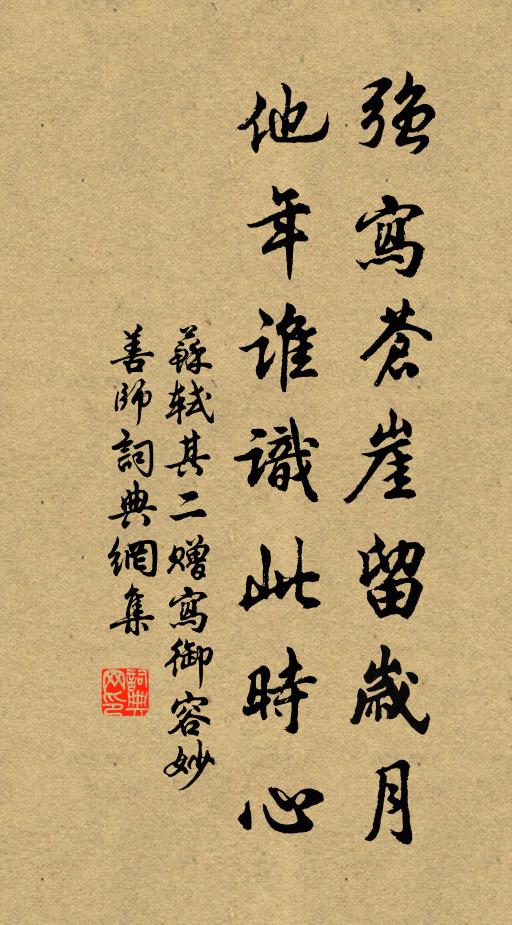 強寫蒼崖留歲月
他年誰識此時心
蘇軾其二贈寫御容妙
善師詞典網集
詞典网印